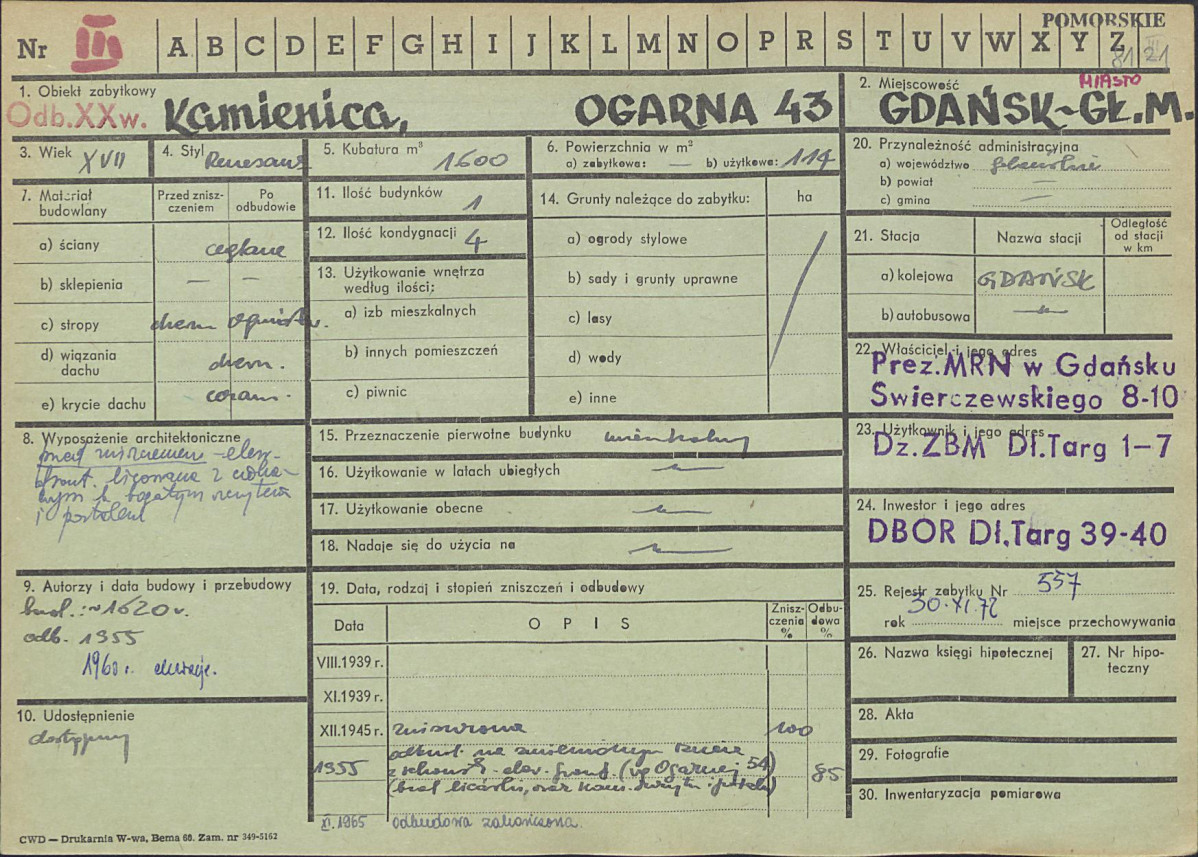 POMORSKIE
Nr III A B C D E F G H I J K L M N O P R S T U V W X Y Z
81 21
1. Obiekt zabytkowy
Odb.XXw. Kamienica, OGARNA 43
2. Miejscowość MIASTO
GDAŃSK-GŁ.M.
3. Wiek XVII
4. Styl Renesans
5. Kubatura m³ 1600
6. Powierzchnia w m²
a) zabytkowa: — b) użytkowa: 114
20. Przynależność administracyjna
a) województwo gdańskie
b) powiat —
c) gmina —
7. Materiał budowlany
Przed zniszczeniem
Po odbudowie
a) ściany ceglane
b) sklepienia — —
c) stropy drewn ogniotrw.
d) wiązania dachu drewn.
e) krycie dachu ceram.
11. Ilość budynków 1
12. Ilość kondygnacji 4
13. Użytkowanie wnętrza
według ilości:
a) izb mieszkalnych
b) innych pomieszczeń
c) piwnic
14. Grunty należące do zabytku: ha
a) ogrody stylowe
b) sady i grunty uprawne
c) lasy
d) wody
e) inne
21. Stacja Nazwa stacji
Odległość
od stacji
w km
a) kolejowa GDAŃSK
b) autobusowa —
22. Właściciel i jego adres
Prez.MRN w Gdańsku
Swierczewskiego 8-10
23. Użytkownik i jego adres
Dz.ZBM Dł.Targ 1-7
24. Inwestor i jego adres
DBOR Dł.Targ 39-40
25. Rejestr zabytku Nr 557
30.XI.72
rok miejsce przechowywania
26. Nazwa księgi hipotecznej
27. Nr hipoteczny
28. Akta
29. Fotografie
30. Inwentaryzacja pomiarowa
8. Wyposażenie architektoniczne
przed zniszczeniem - elew.
front. licowana z
bogatym szczytem
i portalem
9. Autorzy i data budowy i przebudowy
bud.: ~1620 r.
odb. 1955
1960 r. elewacje.
10. Udostępnienie
dostępny
15. Przeznaczenie pierwotne budynku mieszkalny
16. Użytkowanie w latach ubiegłych —
17. Użytkowanie obecne —
18. Nadaje się do użycia na —
19. Data, rodzaj i stopień zniszczeń i odbudowy
Data OPIS Zniszczenia % Odbudowa %
VIII.1939 r.
XI.1939 r.
XII.1945 r. zniszczona 100
odbud. na zmienionym rzucie
1955 z schemat. elew. front. (wg Ogarnej 54) 85
(brak licówki, oraz kam. szczytu i portalu)
XI.1965 odbudowa zakończona.
CWD — Drukarnia W-wa, Bema 60. Zam. nr 349-5162